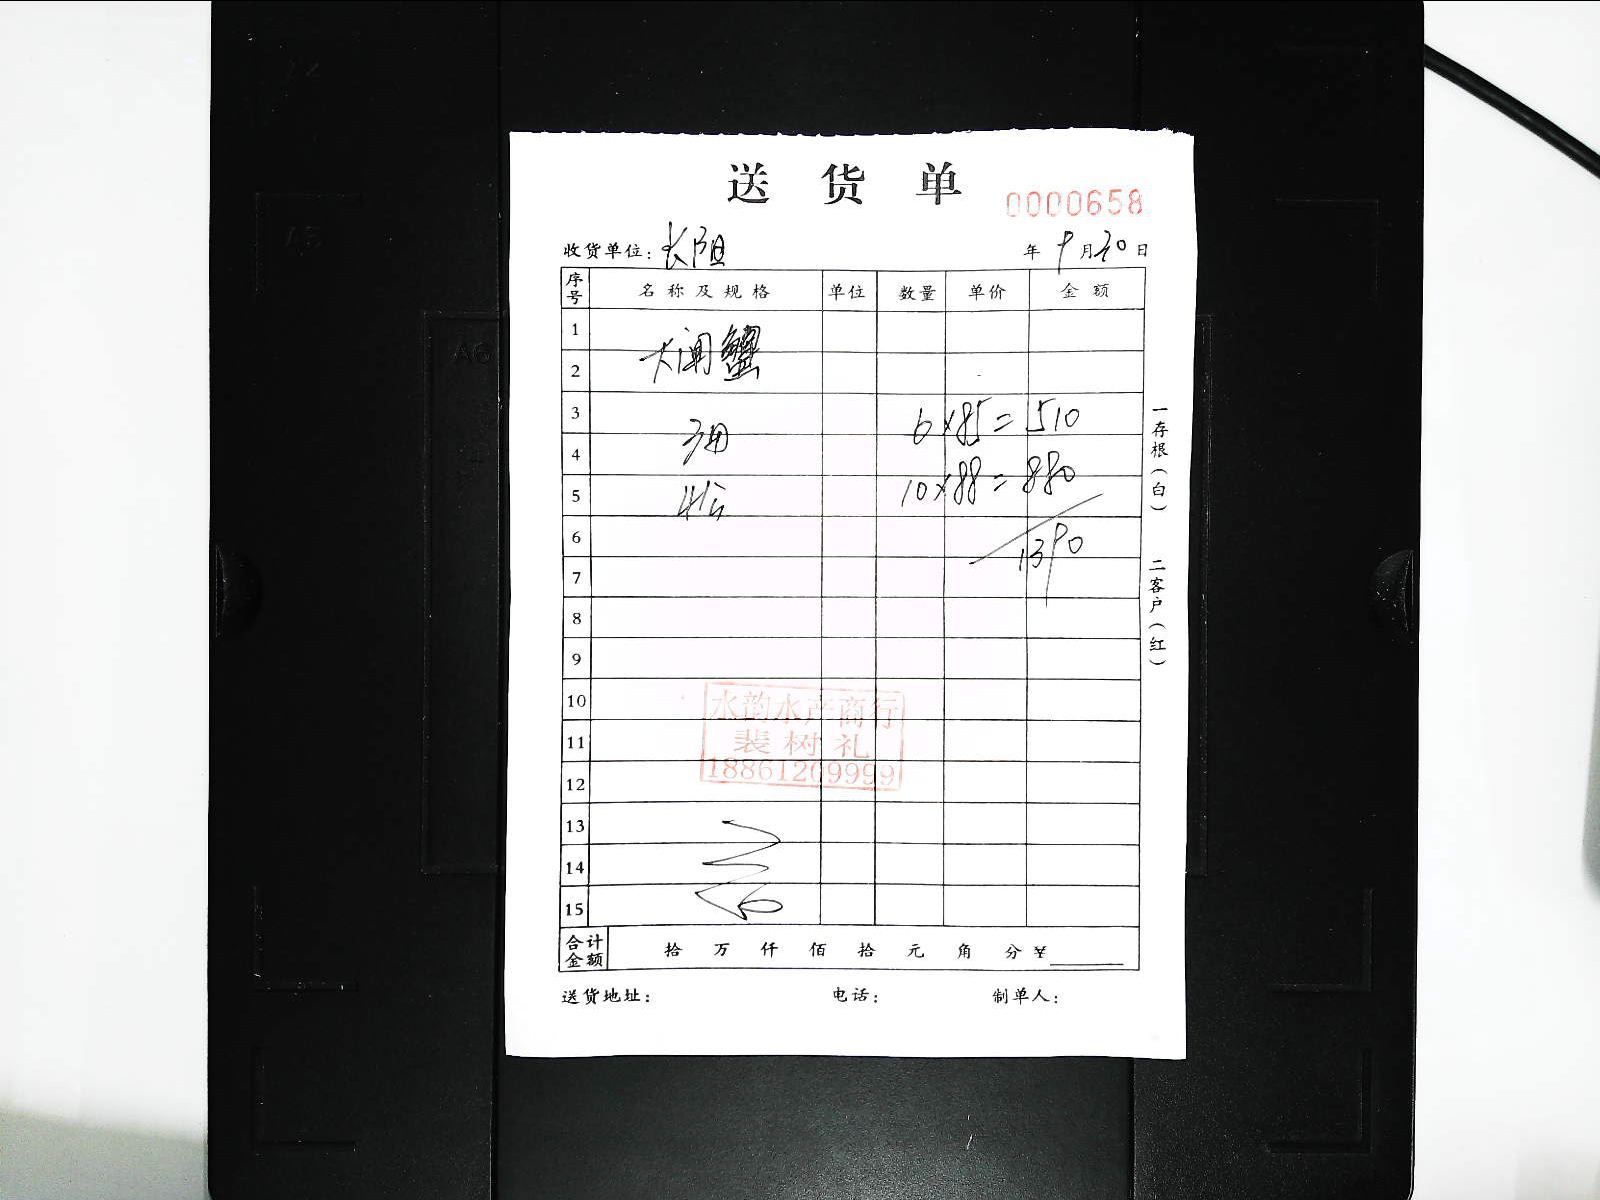 送 货 单
0000658
收货单位：长阳 年 9 月 20 日
序号 名称及规格 单位 数量 单价 金额
1
大闸蟹
2
3 6×85=510
4 10×88=880
5
6 1390
7
8
9
10
11
12
13
14
15
水韵水产商行
裴树礼
18861209999
合计金额 拾 万 仟 佰 拾 元 角 分 ¥
送货地址： 电话： 制单人：
一存根（白） 二客户（红）
A6